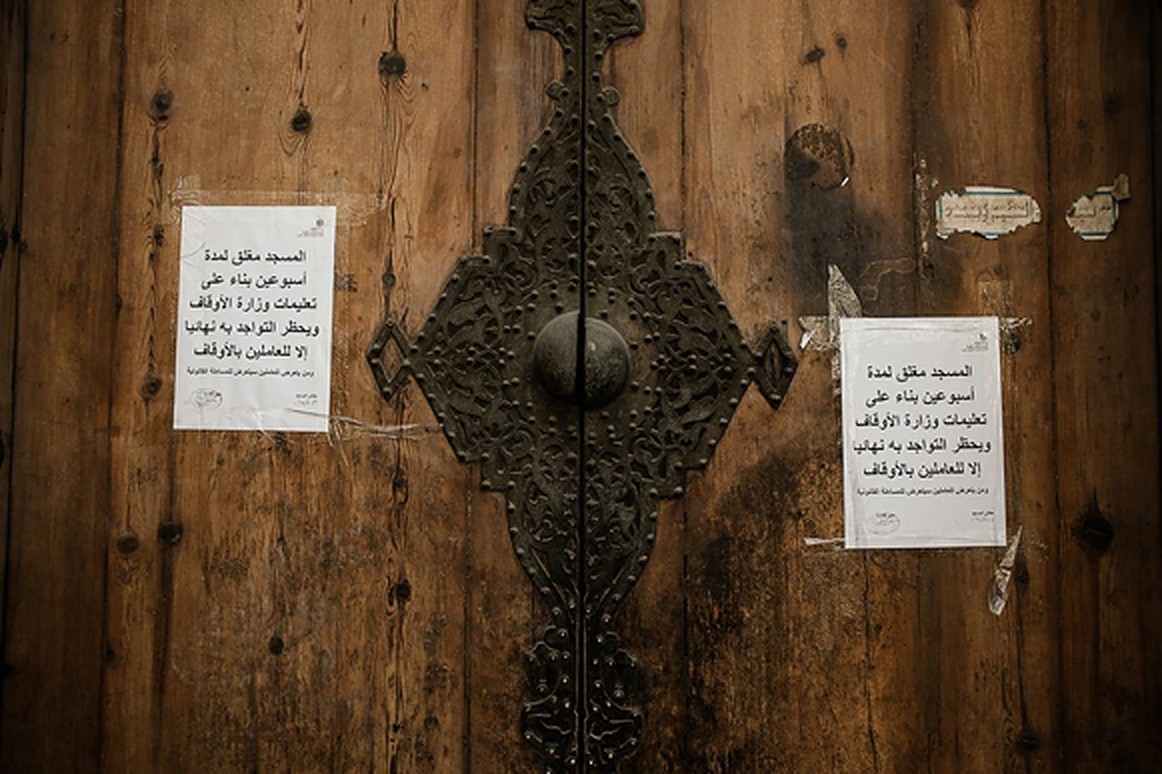 المسجد مغلق لمدة
أسبوعين بناء على
تعليمات وزارة الأوقاف
ويحظر التواجد به نهائيا
إلا للعاملين بالأوقاف
ومن يتعرض للعاملين سيتعرض للمساءلة القانونية
المسجد مغلق لمدة
أسبوعين بناء على
تعليمات وزارة الأوقاف
ويحظر التواجد به نهائيا
إلا للعاملين بالأوقاف
ومن يتعرض للعاملين سيتعرض للمساءلة القانونية